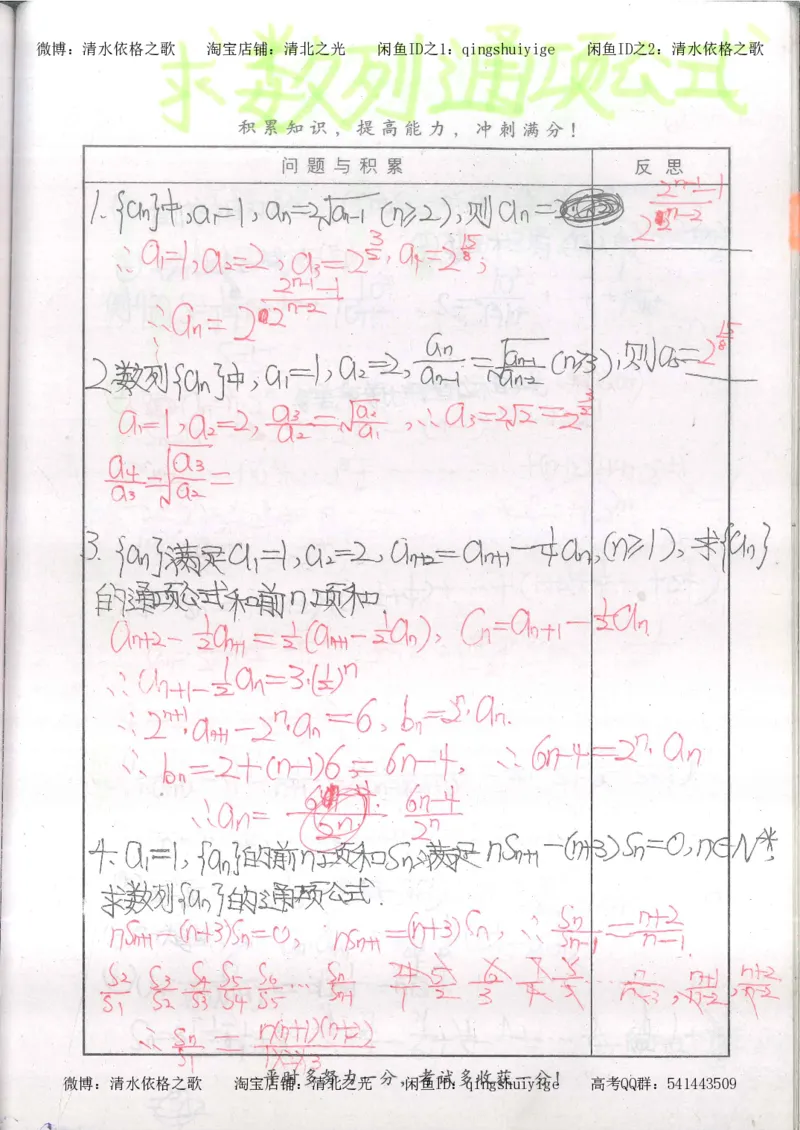 微博：清水依格之歌 淘宝店铺：清北之光 闲鱼ID之1：qingshuiyige 闲鱼ID之2：清水依格之歌
求数列通项公式
积累知识，提高能力，冲刺满分！
问题与积累 反思
1. {an}中,a₁=1,an=2√aₙ₋₁ (n≥2),则an= 2^((2^(n-1)-1)/2^(n-2))
∴a₁=1,a₂=2,a₃=2^(3/2),a₄=2^(15/8),
∴an=2^((2^(n-1)-1)/2^(n-2))
2.数列{an}中,a₁=1,a₂=2, an/aₙ₋₁=√(aₙ₋₁/aₙ₋₂) (n≥3),则a₅=2^(15/8)
a₁=1,a₂=2, a₃/a₂=√(a₂/a₁),∴a₃=2√2=2^(3/2)
a₄/a₃=√(a₃/a₂)=
3. {an}满足a₁=1,a₂=2,aₙ₊₂=aₙ₊₁-¼an,(n≥1),求{an}
的通项公式和前n项和.
aₙ₊₂-½aₙ₊₁=½(aₙ₊₁-½an), Cn=aₙ₊₁-½an
∴aₙ₊₁-½an=3·(½)ⁿ
∴2ⁿ⁺¹·aₙ₊₁-2ⁿ·an=6, bn=2ⁿ·an.
∴bn=2+(n-1)6=6n-4, ∴6n-4=2ⁿ·an
∴an= (6n-4)/2ⁿ
4.a₁=1,{an}的前n项和Sn满足nSₙ₊₁-(n+3)Sn=0,n∈N*,
求数列{an}的通项公式.
nSₙ₊₁-(n+3)Sn=0, nSₙ₊₁=(n+3)Sn, ∴Sn/Sₙ₋₁=(n+2)/(n-1)
S₂/S₁ S₃/S₂ S₄/S₃ S₅/S₄ S₆/S₅ … Sn/Sₙ₋₁ 4/1 5/2 6/3 7/4 8/5 … n/(n-3), (n+1)/(n-2), (n+2)/(n-1)
∴Sn/S₁=n(n+1)(n+2)/(1×2×3)
平时多努力一分，考试多收获一分！
微博：清水依格之歌 淘宝店铺：清北之光 闲鱼ID：qingshuiyige 高考QQ群：541443509